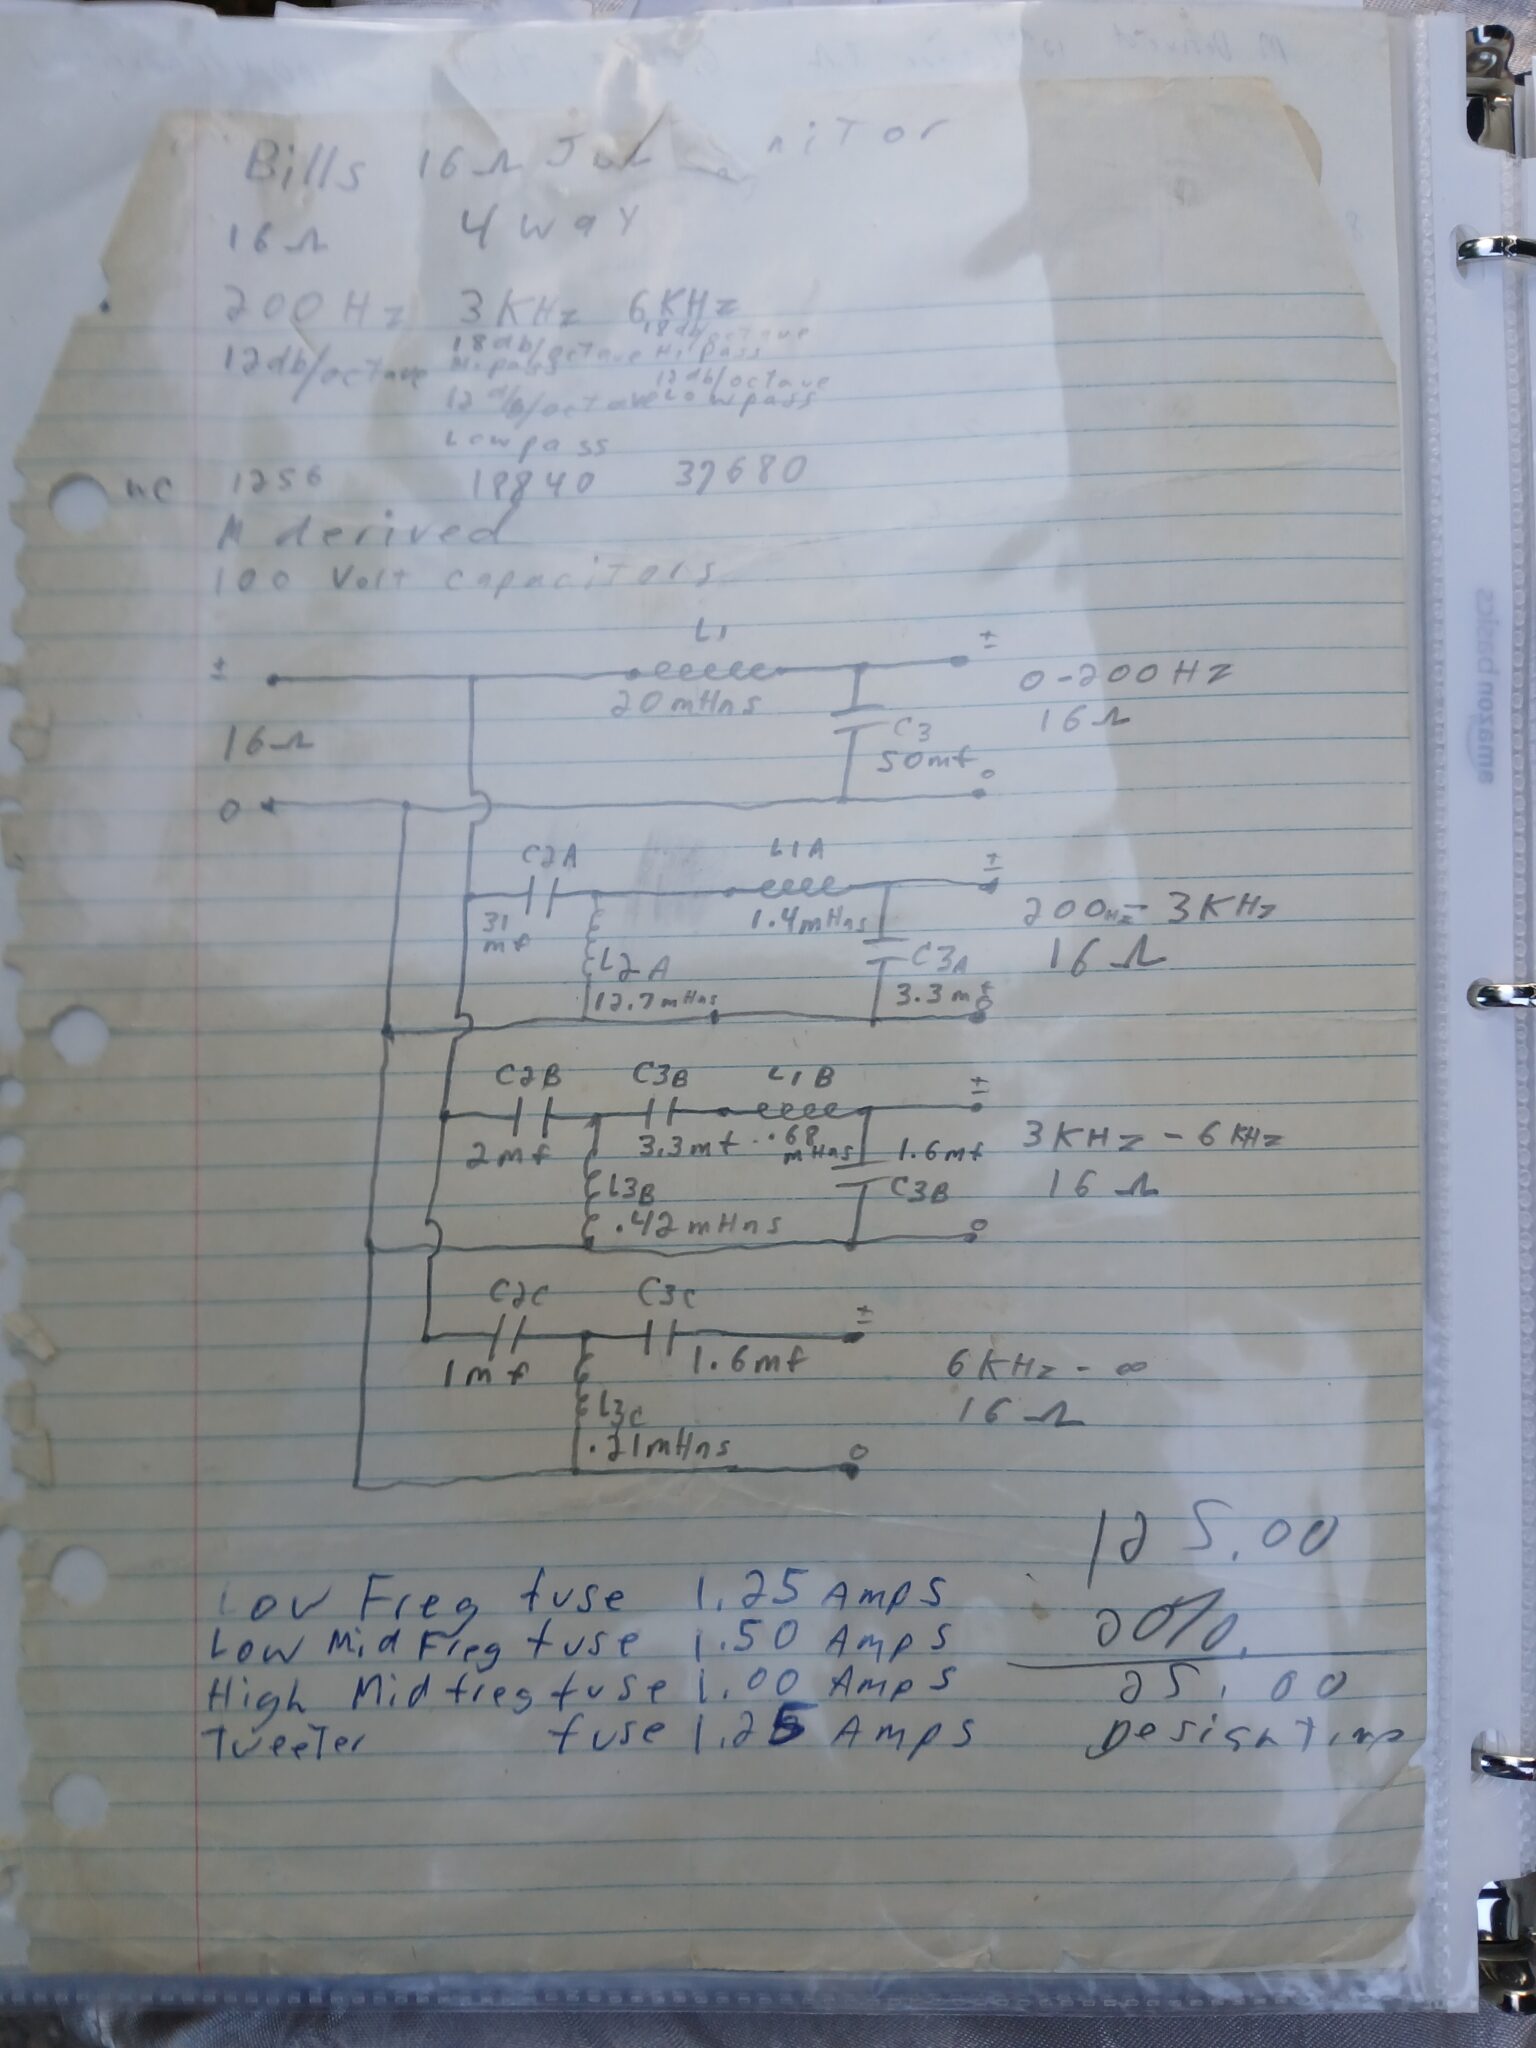 Bills 16Ω nitor
16Ω 4 way
200 Hz 3 KHz 6 KHz
12db/octave 18db/octave Hi pass 18db/octave Hi pass
12db/octave Low pass 12db/octave Low pass
wc 1256 18840 37680
M derived
100 Volt capacitors
L1
± ±
20 mHns 0-200 Hz
16Ω C3 16Ω
50mf
0 0
C2A L1A ±
31 mf 1.4mHns 200Hz - 3KHz
L2A C3A 16Ω
12.7mHns 3.3mf 0
C2B C3B L1B ±
2mf 3.3mf .68 mHns 1.6mf 3KHz - 6KHz
L3B C3B 16Ω
.42mHns 0
C2C C3C ±
1mf 1.6mf 6KHz - ∞
L3C 16Ω
.21mHns 0
125.00
Low Freq fuse 1.25 Amps
20%.
Low Mid Freq fuse 1.50 Amps
High Mid freq fuse 1.00 Amps 25.00
Tweeter fuse 1.25 Amps Design Time
amazon basics